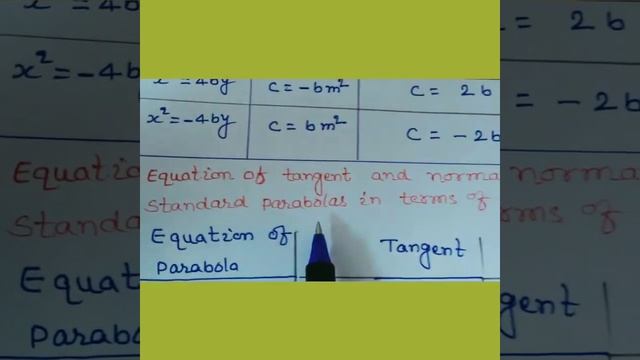 x² = 4by C = -bm² C = 2b
x² = -4by C = bm² C = -2b
Equation of tangent and norma
Standard parabolas in terms of
Equation of Tangent
Parabola